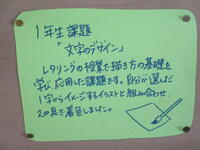 1年生課題
「文字のデザイン」
レタリングの授業で描き方の基礎を
学び、応用した課題です。自分が選んだ
1字からイメージするイラストと組み合わせ、
絵の具で着色しました。